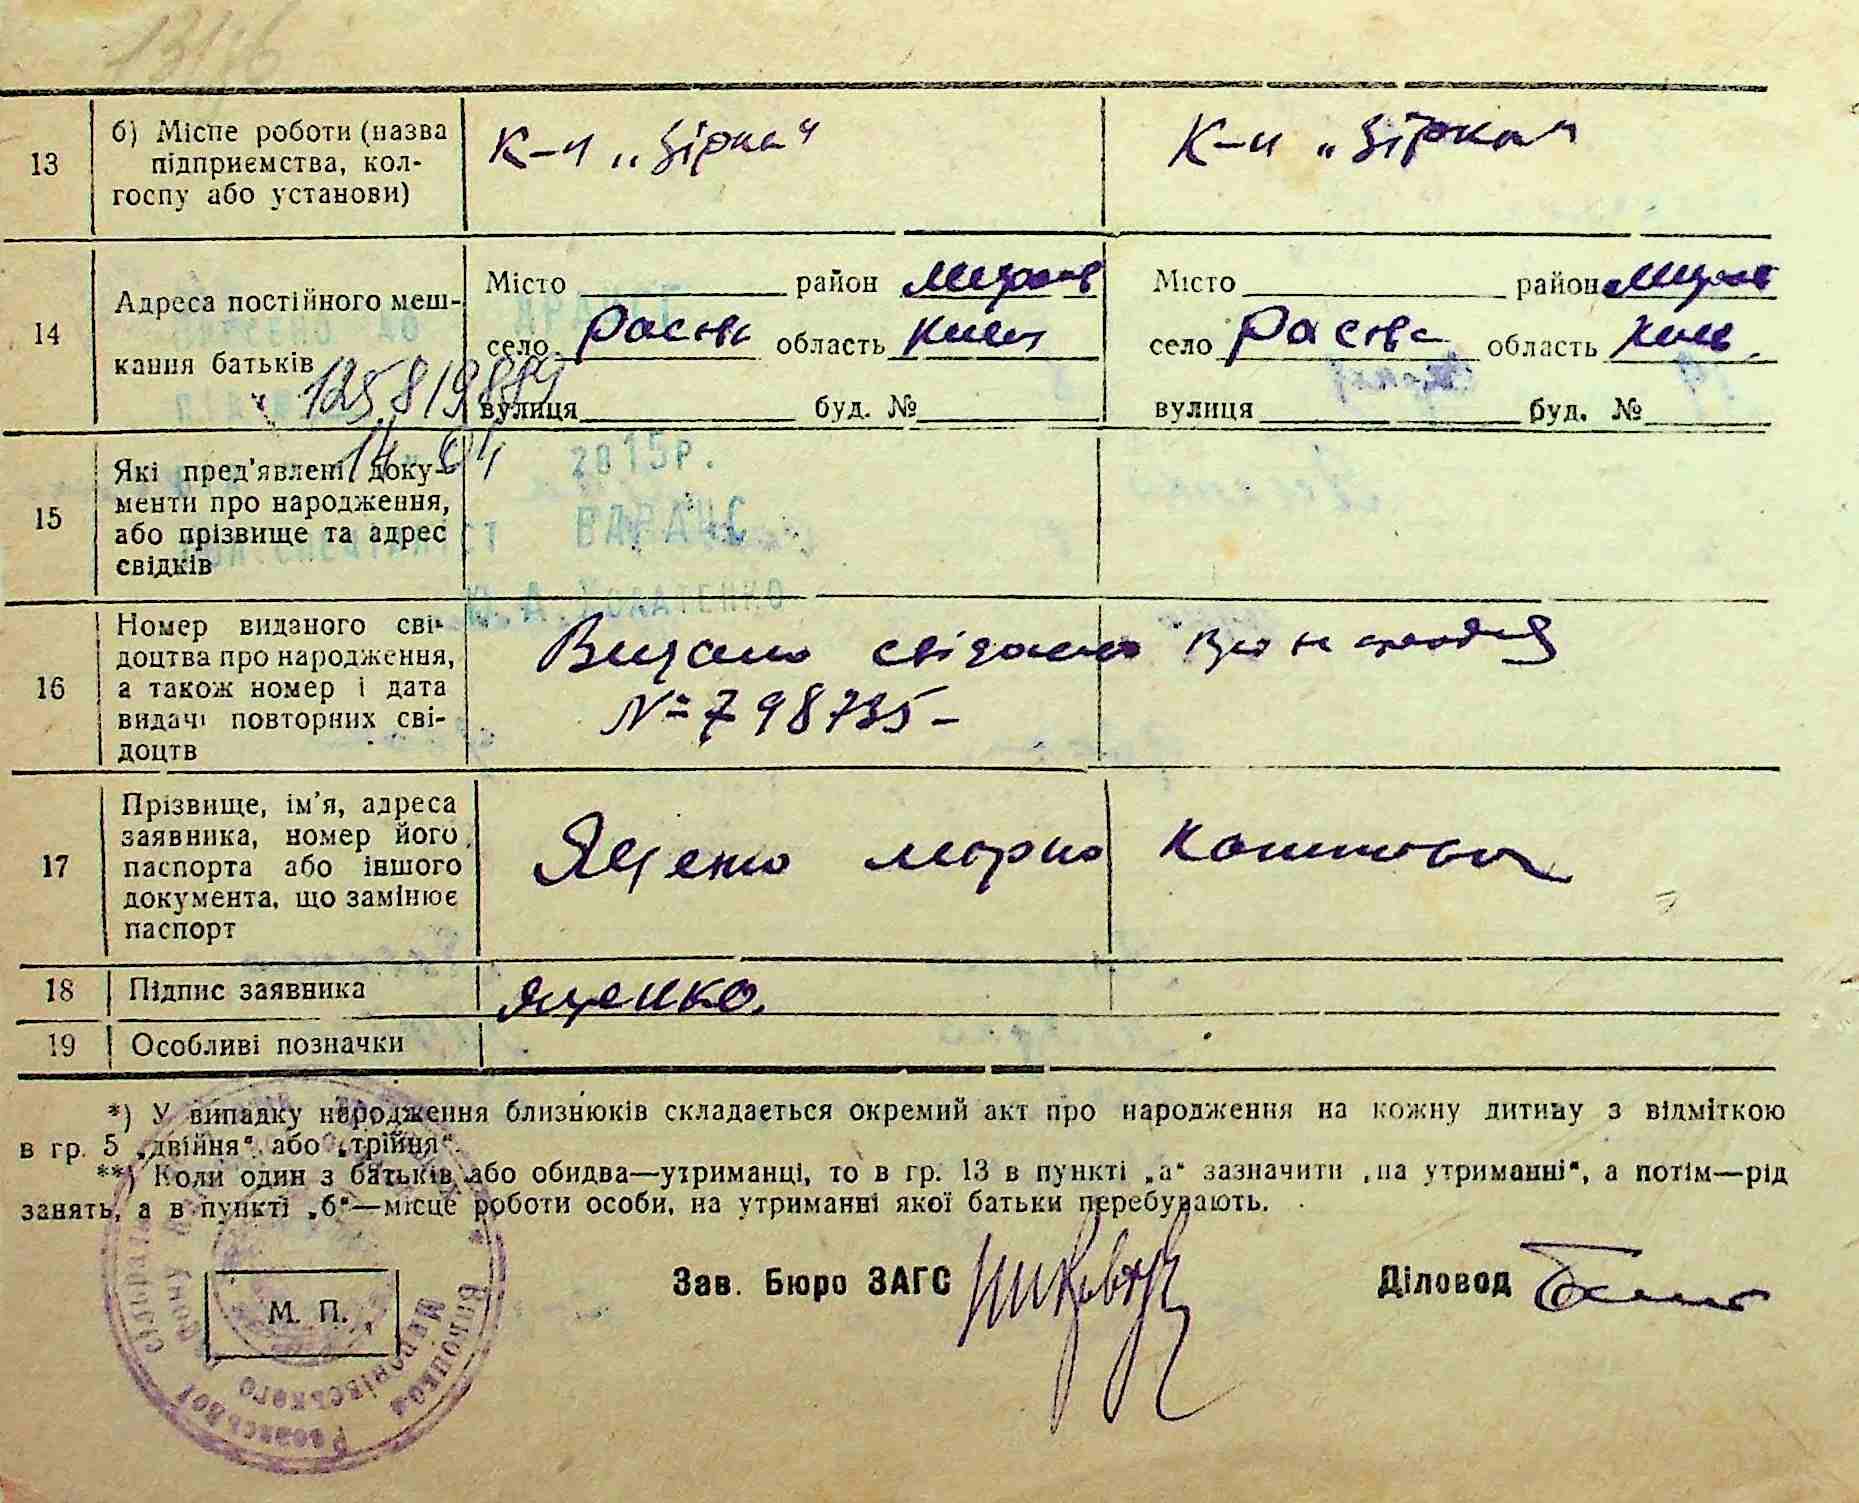 13
б) Місце роботи (назва
підприємства, кол-
госпу або установи)
К-п „Зірка“
К-п „Зірка“
14
Адреса постійного меш-
кання батьків
Місто район
село область Київ
вулиця буд. №
Місто район
село область Київ
вулиця буд. №
12581988
14 04
2015р.
15
Які пред’явлені доку-
менти про народження,
або прізвище та адрес
свідків
16
Номер виданого сві-
доцтва про народження,
а також номер і дата
видачі повторних сві-
доцтв
Видано
№ 798735
17
Прізвище, ім’я, адреса
заявника, номер його
паспорта або іншого
документа, що замінює
паспорт
Яценко Марія
18
Підпис заявника
Яценко.
19
Особливі позначки
*) У випадку народження близнюків складається окремий акт про народження на кожну дитину з відміткою
в гр. 5 „двійня“ або „трійня“.
**) Коли один з батьків або обидва—утриманці, то в гр. 13 в пункті „а“ зазначити „на утриманні“, а потім—рід
занять, а в пункті „б“—місце роботи особи, на утриманні якої батьки перебувають.
Зав. Бюро ЗАГС
Діловод
М. П.
Виконком
Миронівського